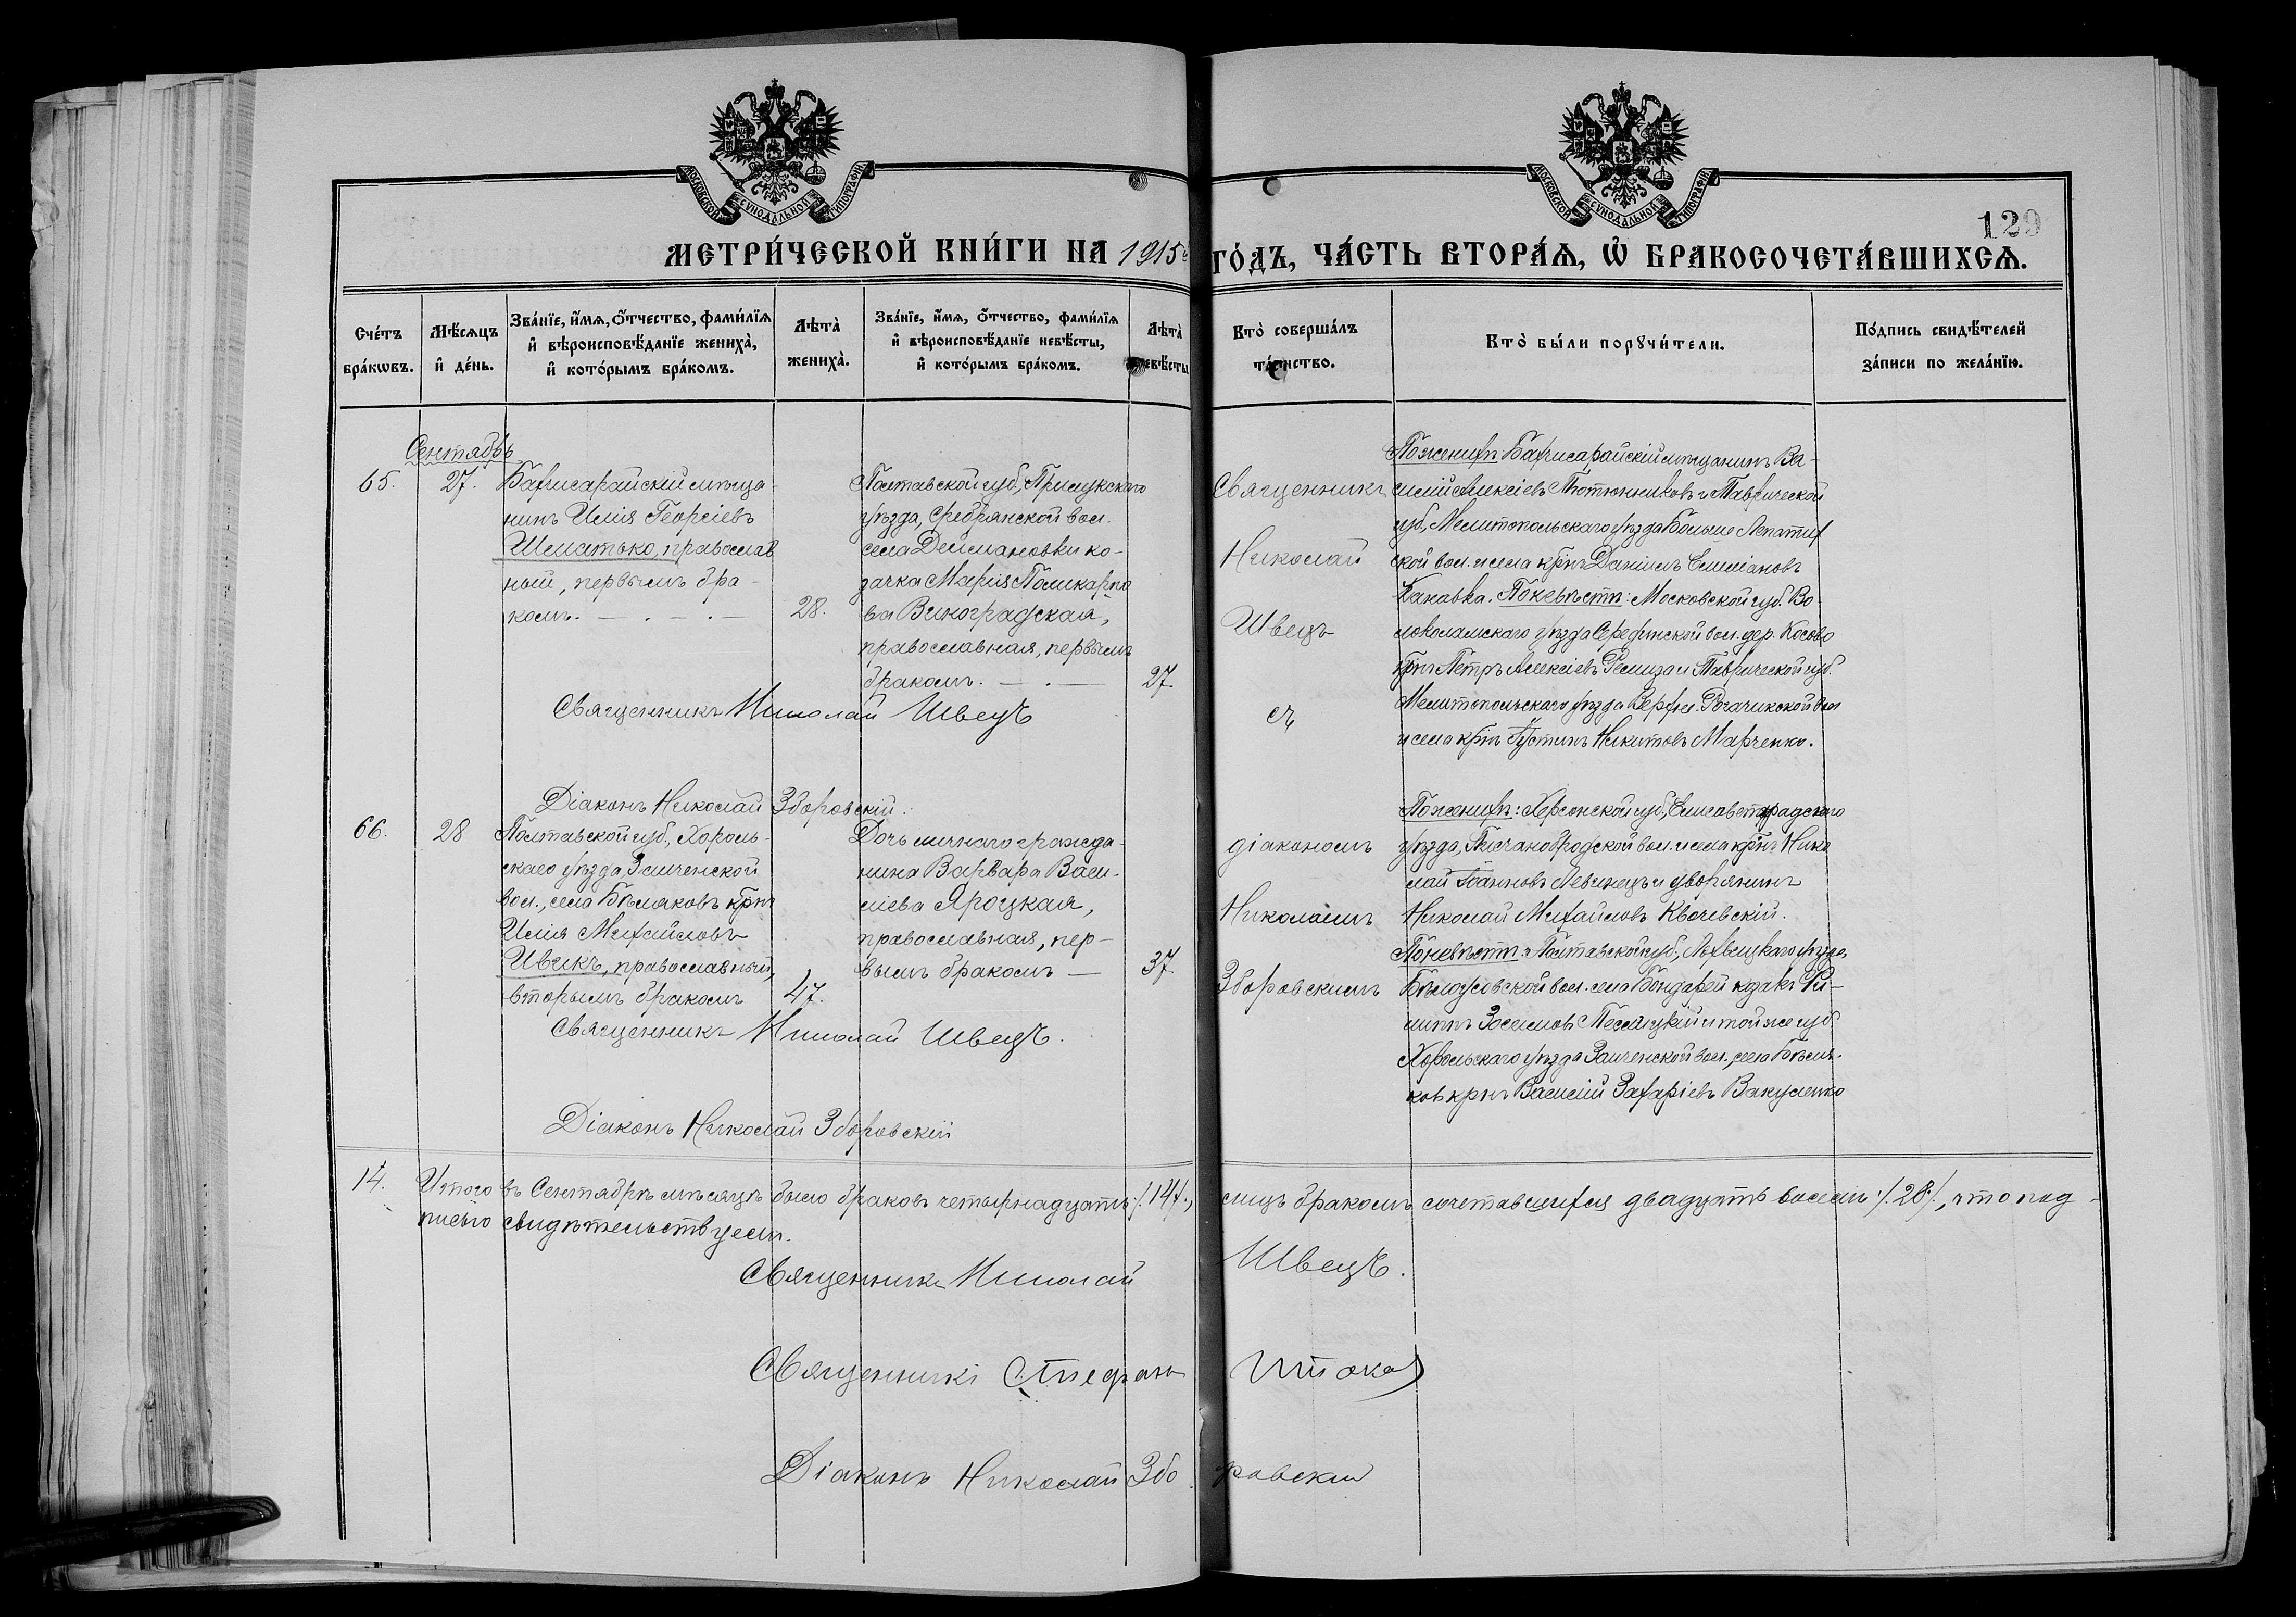 МОСКОВСКОЙ СУНОДАЛЬНОЙ ТИПОГРАФІИ
МОСКОВСКОЙ СУНОДАЛЬНОЙ ТИПОГРАФІИ
129
МЕТРИ́ЧЕСКОЙ КНИ́ГИ НА 1915 ГО́ДЪ, ЧА́СТЬ ВТОРА́Я, Ѽ БРАКОСОЧЕТА́ВШИХСЯ.
Сче́тъ бра́кѡвъ.
Мѣ́сяцъ и҆ де́нь.
Зва́нїе, и҆́мя, ѻ҆́тчество, фами́лїя и҆ вѣроисповѣ́данїе жениха̀, и҆ кото́рымъ бра́комъ.
Лѣта̀ жениха̀.
Зва́нїе, и҆́мя, ѻ҆́тчество, фами́лїя и҆ вѣроисповѣ́данїе невѣ́сты, и҆ кото́рымъ бра́комъ.
Лѣта̀ невѣ́сты
Кто̀ соверша́лъ та́инство.
Кто̀ бы́ли порꙋчи́тели.
По́дпись свидѣ́телей за́писи по жела́нїю.
Сентябрь
65.
27.
Бахчисарайскій мѣща-
нинъ Илія Георгіевъ
Шматько, православ
ный, первымъ бра-
комъ. — . — . —
28.
Полтавской губ., Прилукскаго
уѣзда, Сребрянской вол.
села Деймановки ко-
зачка Марія Поликарпо
ва Виноградская,
православная, первымъ
бракомъ. — . —
27.
Священникъ Николай Швецъ
Діаконъ Николай Зборовскій.
Священникъ
Николай
Швецъ
съ
діакономъ
Николаемъ
Зборовскимъ
По женихѣ Бахчисарайскій мѣщанинъ Ва-
силій Алексіевъ Тютюнниковъ и Таврической
губ., Мелитопольскаго уѣзда Больше Лепатих
ской вол. и села крнъ Даніилъ Емиліановъ
Канавка. По невѣстѣ: Московской губ. Во
локоламскаго уѣзда Серединской вол. дер. Косово
крнъ Петръ Алексіевъ Ремиза и Таврической губ.
Мелитопольскаго уѣзда Верхн. Рогачикской вол
и села крнъ Іустинъ Никитовъ Марченко.
66.
28
Полтавской губ., Хороль-
скаго уѣзда Заиченской
вол., села Бѣляковъ крнъ
Илія Михайловъ
Ивчкъ, православный,
вторымъ бракомъ
47.
Дочь личнаго гражда-
нина Варвара Васи-
ліева Яроцкая,
православная, пер-
вымъ бракомъ —
37.
Священникъ Николай Швецъ.
Діаконъ Николай Зборовскій
По женихѣ: Херсонской губ., Елисаветградскаго
уѣзда, Песчанобродской вол. и села крнъ Нико
лай Іоанновъ Левинецъ и дворянинъ
Николай Михайловъ Квачевскій.
По невѣстѣ: Полтавской губ., Лохвицкаго уѣзда,
Бѣлоусовской вол. села Бондарей козакъ Фи-
липпъ Зосимовъ Песоцкій и той же губ.
Хорольскаго уѣзда Заиченской вол., села Бѣля-
ковъ крнъ Василій Захаріевъ Вакуленко
14.
Итого въ Сентябрѣ мѣсяцѣ было браковъ четырнадцать /.14/., лицъ бракомъ сочетавшихся двадцать восемь /.28/., что под-
писью свидѣтельствуемъ.
Священникъ Николай Швецъ.
Священникъ Стефанъ
Діаконъ Николай Зборовскій